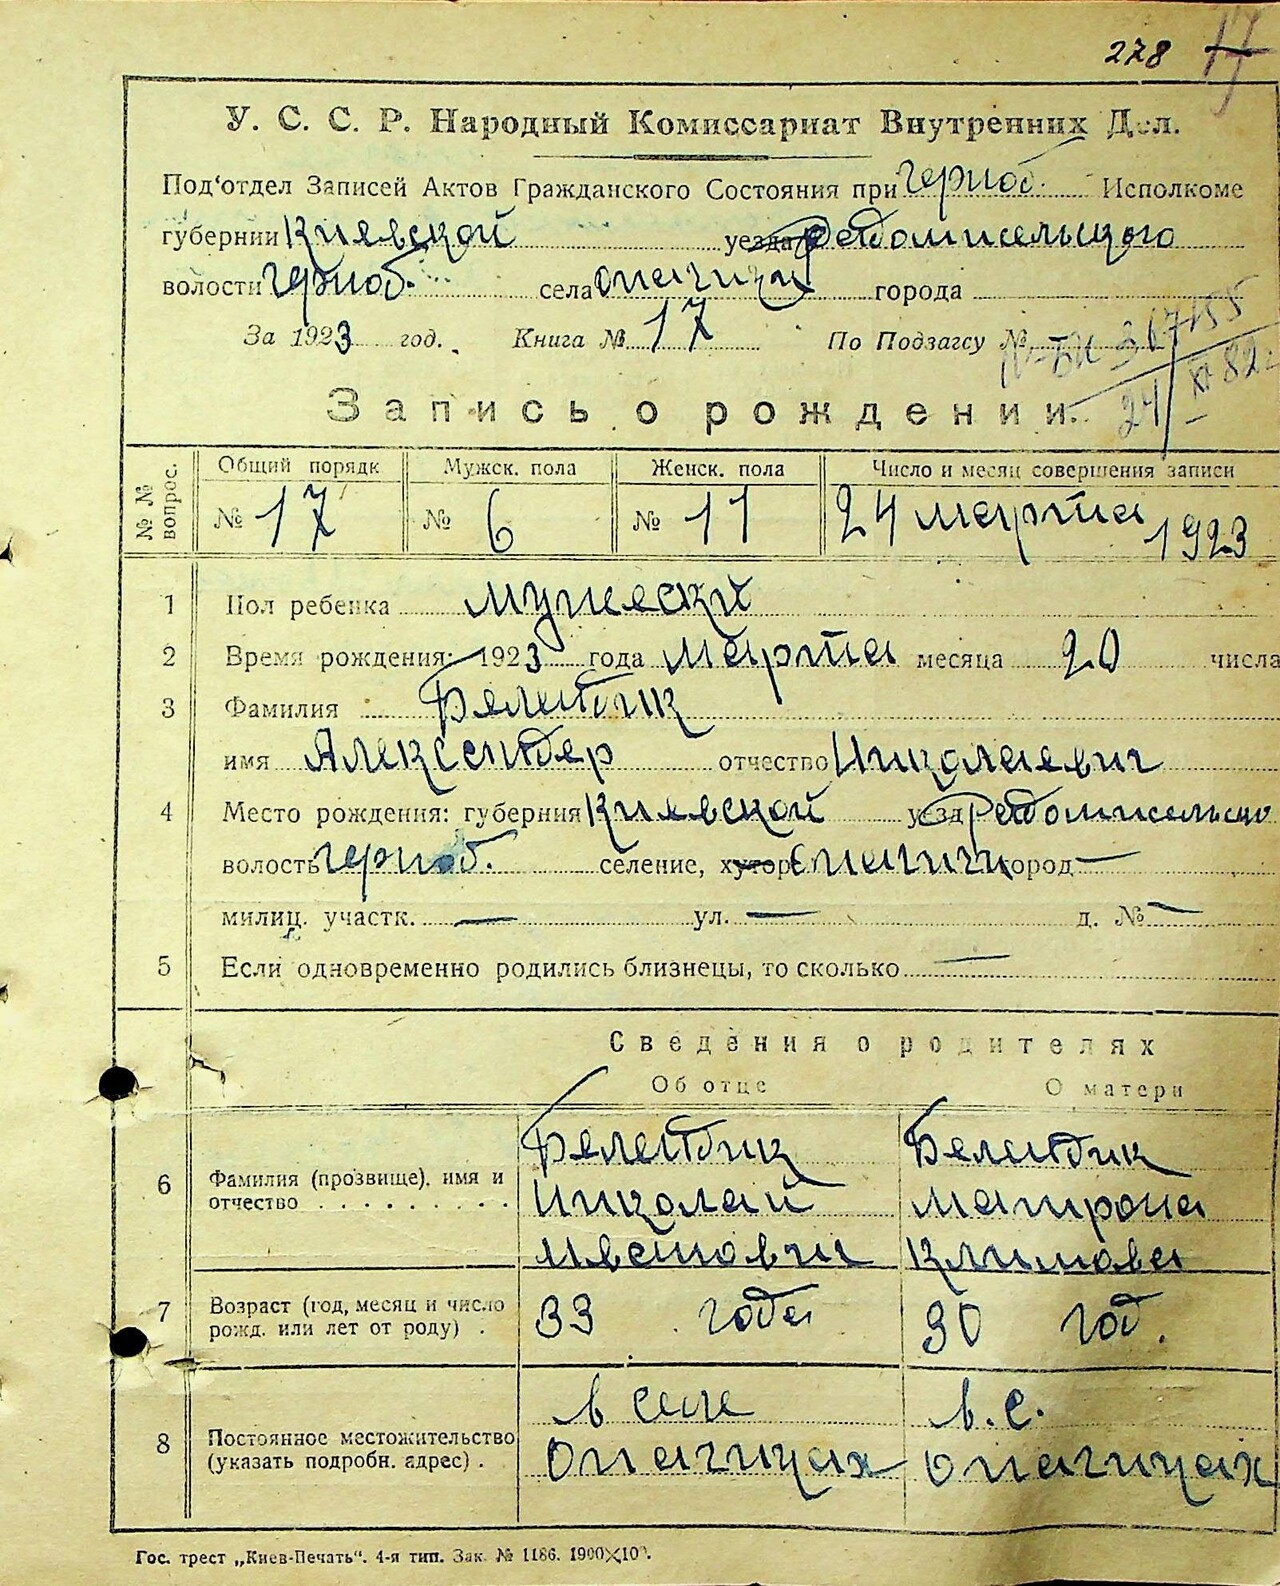 278 17
У. С. С. Р. Народный Комиссариат Внутренних Дел.
Под'отдел Записей Актов Гражданского Состояния при Черноб. Исполкоме
губернии Киевской уезда Радомисельского
волости Черноб. села Опачичи города
За 1923 год. Книга № 17 По Подзагсу №
24/XI 82г
Запись о рождении.
№ № вопрос. Общий порядк Мужск. пола Женск. пола Число и месяц совершения записи
№ 17 № 6 № 11 24 марта 1923
1 Пол ребенка мужеский
2 Время рождения: 1923 года марта месяца 20 числа
3 Фамилия Белендик
имя Александер отчество Николаевич
4 Место рождения: губерния Киевской уезд Радомисельско
волость Черноб. селение, хутор Опачичи город —
милиц. участк. — ул. — д. № —
5 Если одновременно родились близнецы, то сколько —
Сведения о родителях
Об отце О матери
6 Фамилия (прозвище). имя и отчество . . . . . . . . .
Белендик Белендик
Николай Матрона
Климова
7 Возраст (год, месяц и число рожд. или лет от роду) .
33 года 30 год.
8 Постоянное местожительство (указать подробн. адрес) .
в селе в. с.
Опачицах Опачицах
Гос. трест „Киев-Печать“. 4-я тип. Зак. № 1186. 1900×10